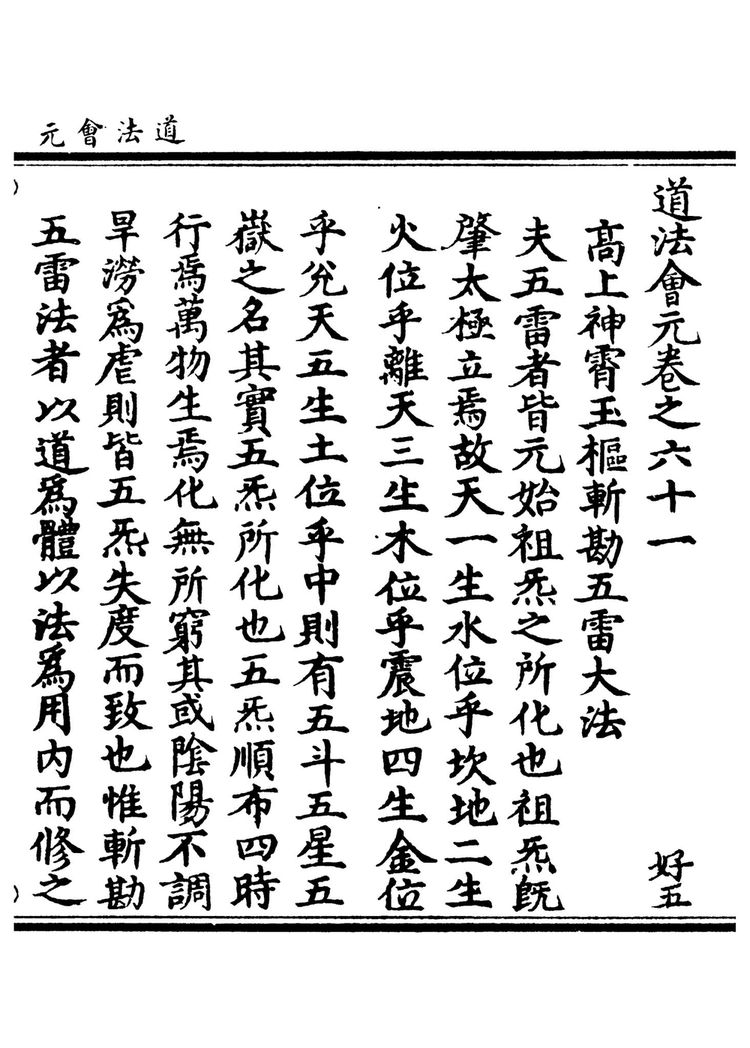 道法會元
道法會元卷之六十一
好五
高上神霄玉樞斬勘五雷大法
夫五雷者皆元始祖炁之所化也祖炁旣
肇太極立焉故天一生水位乎坎地二生
火位乎離天三生木位乎震地四生金位
乎兊天五生土位乎中則有五斗五星五
嶽之名其實五炁所化也五炁順布四時
行焉萬物生焉化無所窮其或陰陽不調
旱澇爲虐則皆五炁失度而致也惟斬勘
五雷法者以道爲體以法爲用内而修之